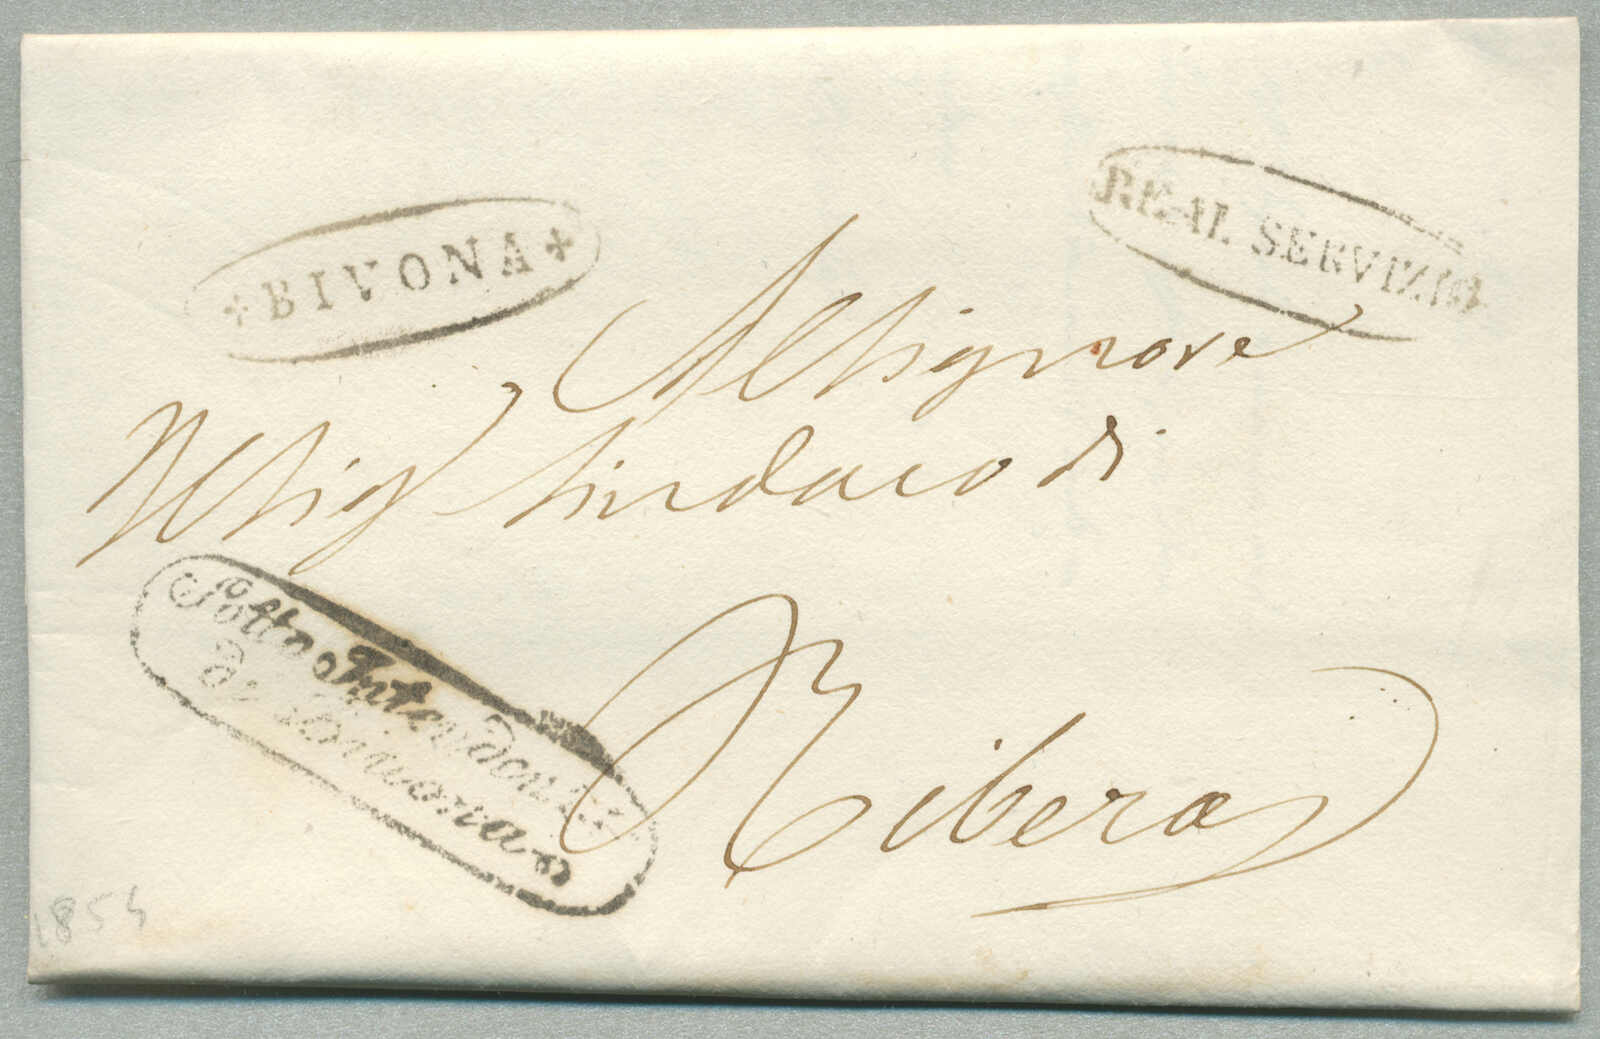 BIVONA
REAL SERVIZIO
Al Signore
Il Sig Sindaco di
Ribera
Sotto Intendenza
di Bivona
1854